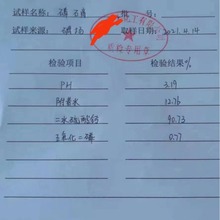 试样名称: 磷石膏 批 号:
试样来源: 磷沟 取样日期: 2021.4.14
化工有限 质检专用章
检验项目 检验结果/%
PH 3.19
附着水 12.76
二水硫酸钙 90.73
五氧化二磷 0.77